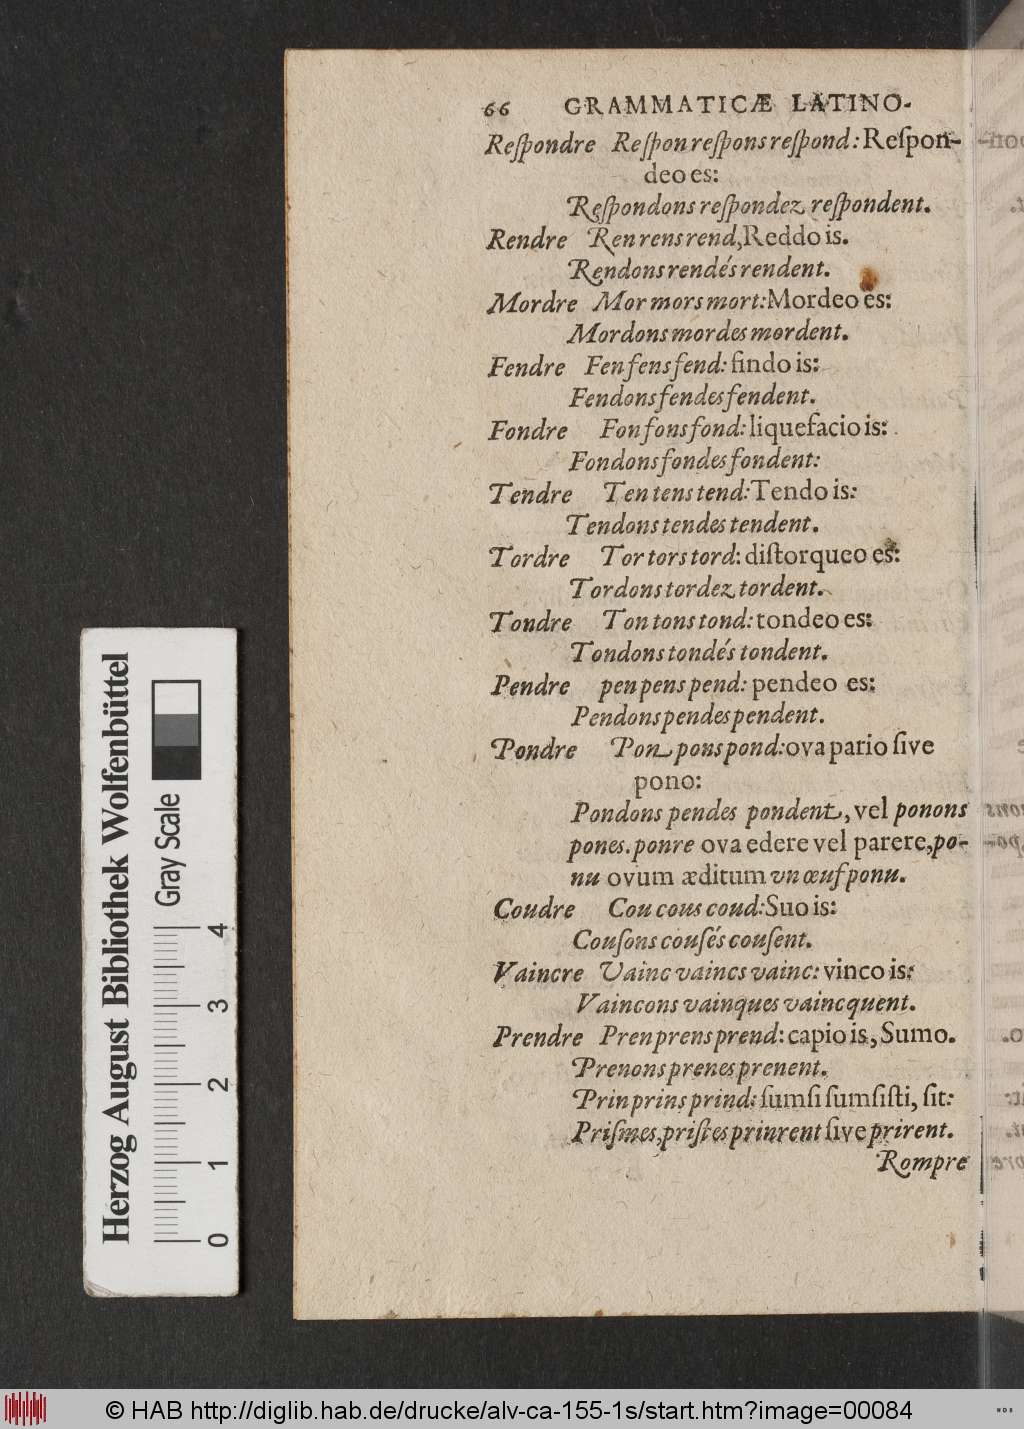 66 GRAMMATICÆ LATINO-
Reſpondre Reſpon reſpons reſpond: Reſpon-
deo es:
Reſpondons reſpondez reſpondent.
Rendre Ren rens rend, Reddo is.
Rendons rendés rendent.
Mordre Mor mors mort: Mordeo es:
Mordons mordes mordent.
Fendre Fen fens fend: findo is:
Fendons fendes fendent.
Fondre Fon fons fond: liquefacio is:
Fondons fondes fondent:
Tendre Ten tens tend: Tendo is:
Tendons tendes tendent.
Tordre Tor tors tord: diſtorqueo es:
Tordons tordez tordent.
Tondre Ton tons tond: tondeo es:
Tondons tondés tondent.
Pendre pen pens pend: pendeo es:
Pendons pendes pendent.
Pondre Pon pons pond: ova pario ſive
pono:
Pondons pendes pondent, vel ponons
pones. ponre ova edere vel parere, po-
nu ovum æditum vn œuf ponu.
Coudre Cou cous coud: Suo is:
Couſons couſés couſent.
Vaincre Vainc vaincs vainc: vinco is:
Vaincons vainques vaincquent.
Prendre Pren prens prend: capio is, Sumo.
Prenons prenes prenent.
Prin prins prind: ſumſi ſumſiſti, ſit:
Priſmes, priſtes prinrent ſive prirent.
Rompre
Herzog August Bibliothek Wolfenbüttel
Gray Scale
0 1 2 3 4
© HAB http://diglib.hab.de/drucke/alv-ca-155-1s/start.htm?image=00084